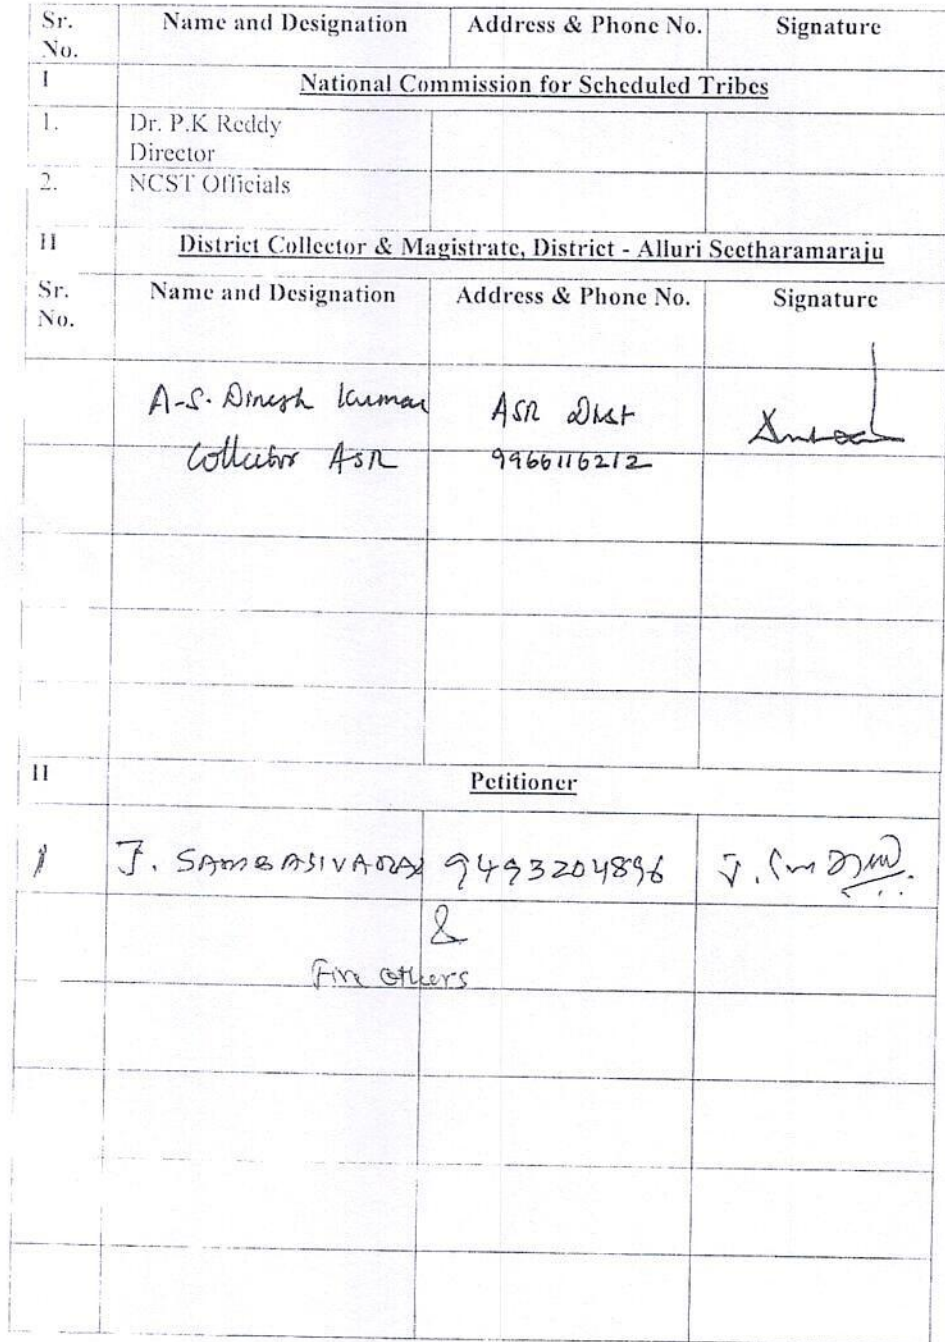 Sr. No. Name and Designation Address & Phone No. Signature
I National Commission for Scheduled Tribes
1. Dr. P.K Reddy
Director
2. NCST Officials
II District Collector & Magistrate, District - Alluri Seetharamaraju
Sr. No. Name and Designation Address & Phone No. Signature
A-S. Dinesh Kumar ASR Dist
Collector ASR 9966116212
II Petitioner
1 J. SAMBASIVARAO 9493204896
&
Five others